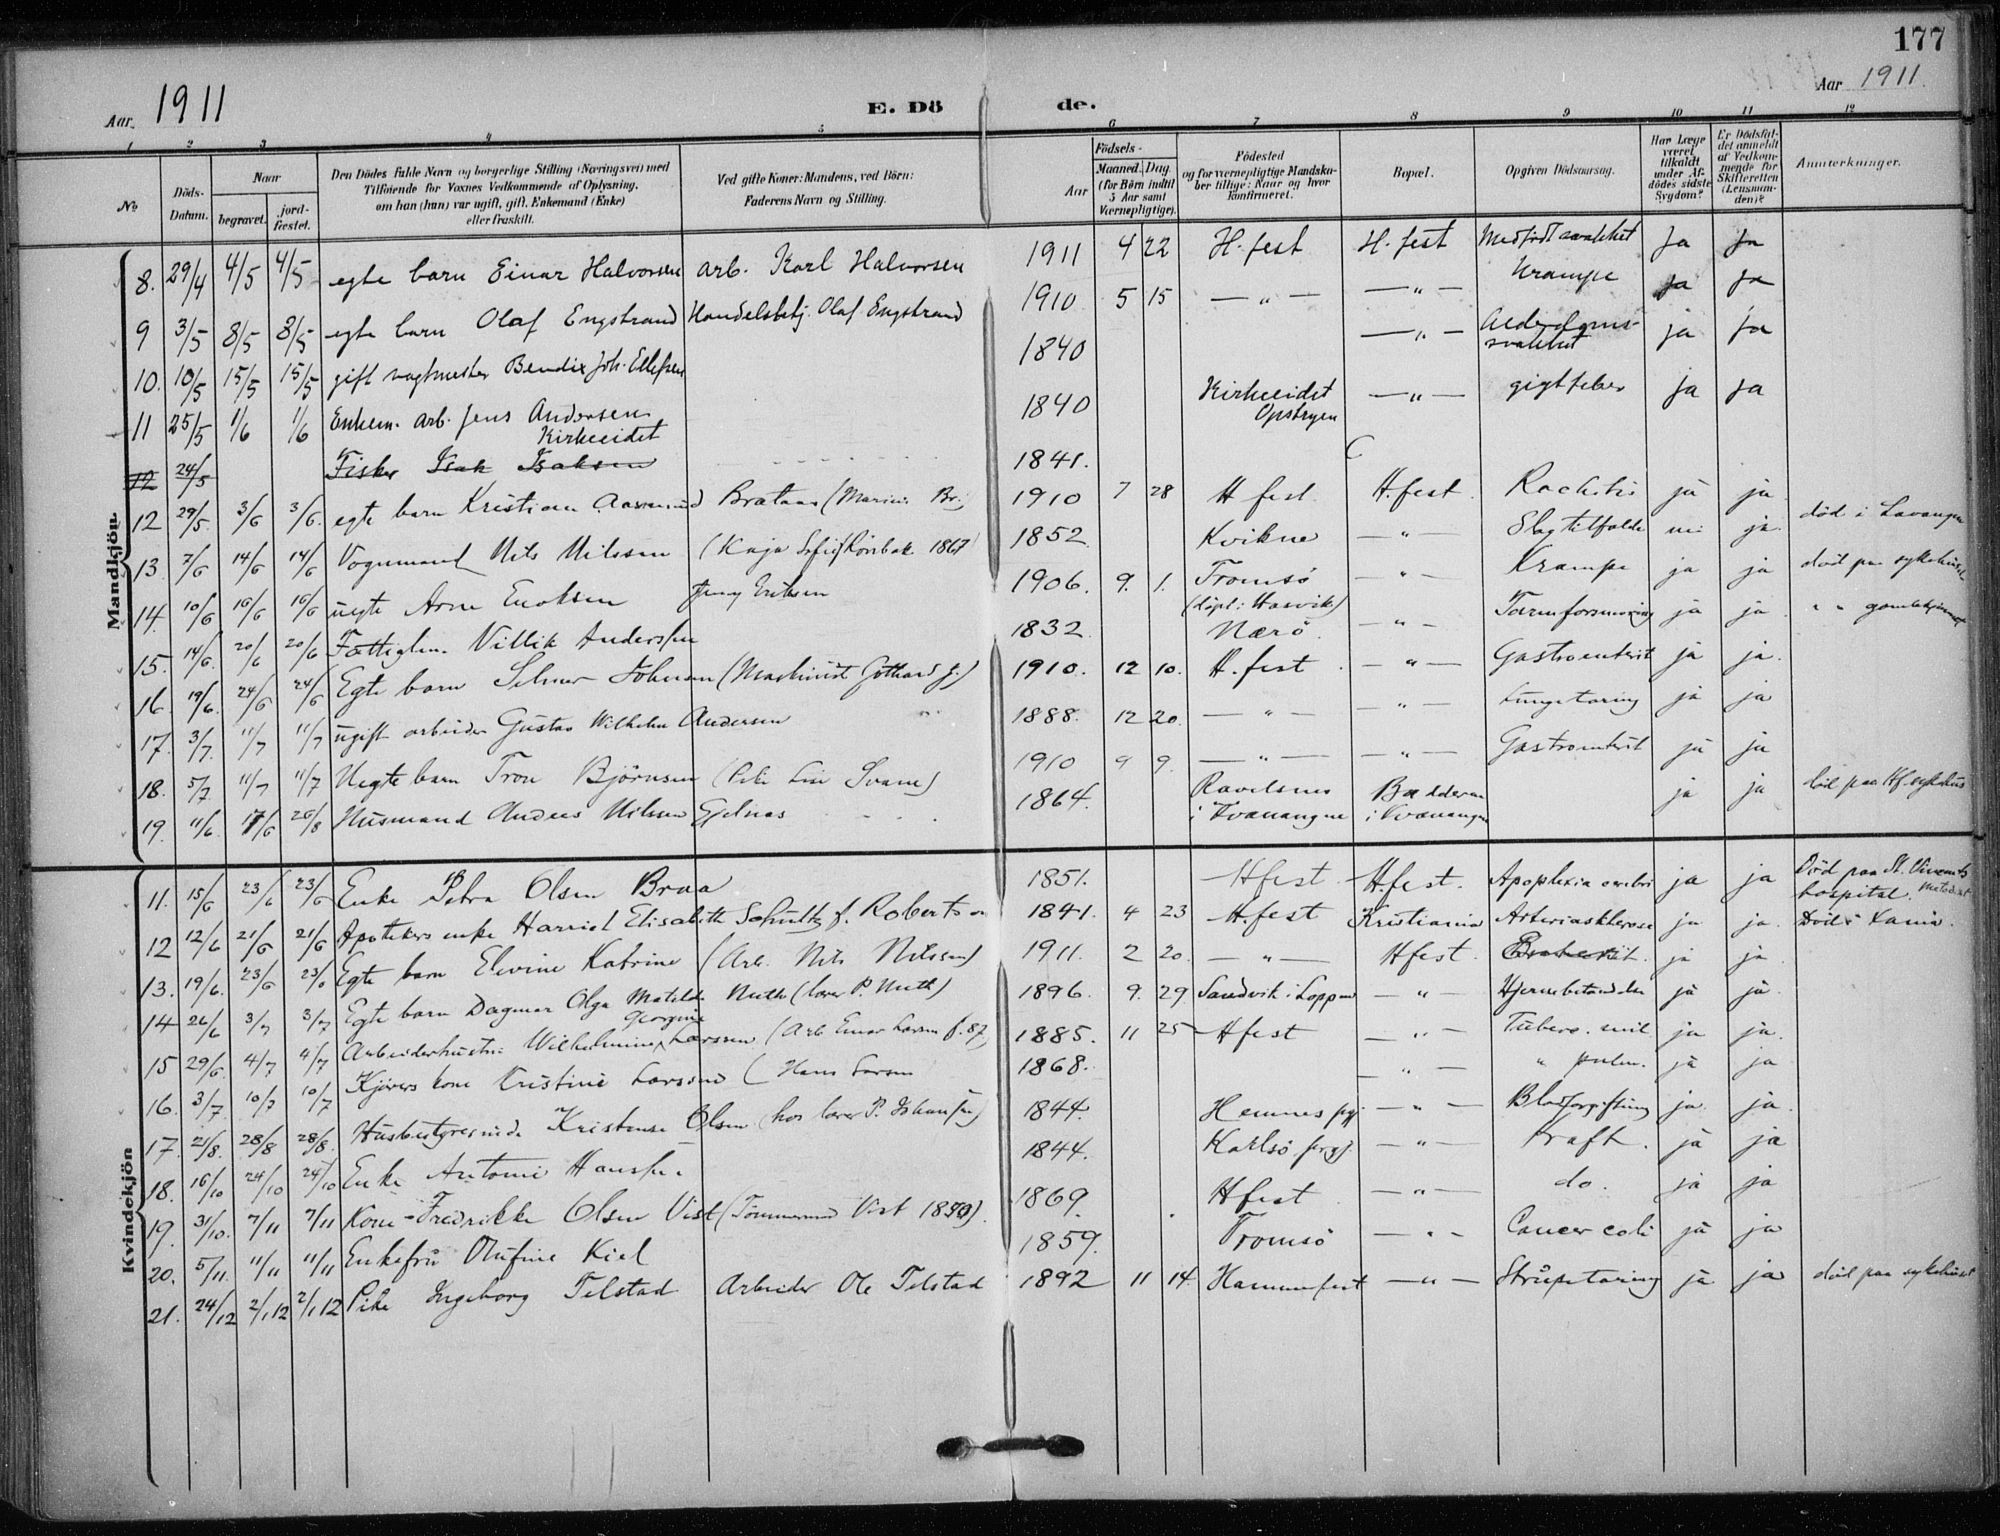 177
Aar 1911
E. Dö de.
Aar 1911.
1 2 3 4 5 6 7 8 9 10 11 12
No
Döds-Datum.
Naar
begravet.
jord-fæstet.
Den Dödes fulde Navn og borgerlige Stilling (Næringsvei) med
Tilföiende for Voxnes Vedkommende af Oplysning,
om han (hun) var ugift, gift, Enkemand (Enke)
eller fraskilt.
Ved gifte Koner: Mandens, ved Börn:
Faderens Navn og Stilling.
Födsels-
Aar
Maaned. Dag.
(for Börn indtil
5 Aar samt
Værnepligtige).
Födested
og for værnepligtige Mandska-
ber tillige: Naar og hvor
konfirmeret.
Bopæl.
Opgiven Dödsaarsag.
Har Læge
været
tilkaldt
under Af-
dödes sidste
Sygdom?
Er Dödsfal-
det anmeldt
af Vedkom-
mende for
Skifteretten
(Lensman-
den)?
Anmærkninger.
Mandkjön.
8. 29/4 4/5 4/5 egte barn Einar Halvorsen arb. Karl Halvorsen 1911 4 22 H. fest H. fest Medfödt svakhet Ja Ja
9 3/5 8/5 8/5 egte barn Olaf Engstrand Handelsbetj. Olaf Engstrand 1910 5 15 — " — — " — Krampe Ja Ja
10. 10/5 15/5 15/5 gift vagtmester Bendix Joh. Ellefsen 1840 — " — Alderdoms-
svakhet ja Ja
11 25/5 1/6 1/6 Enkem. arb. Jens Andersen
Kirkeeidet 1840 Kirkeeidet — " — gigtfeber ja ja
12 24/5 Fisker Isak Isaksen 1841.
12 29/5. 3/6 3/6. egte barn Kristian Aasmund Brataas (Marius Br.) 1910 7 28 H fest H. fest Rachitis ja ja
13. 7/6 14/6 14/6 Vognmand Nils Nilssen 1852 Kvikne — " — Slagtilfælde ja. död i Lavangen
14. 10/6 16/6 16/6 uegte Arne Enoksen Jenny Eriksen 1906. 9. 1. Tromsö
(döpt i Hasvik) — " — Krampe ja ja död paa sykehuset
15. 14/6. 20/6 20/6 Fattiglem. Villik Anderssen 1832. Nærö. — " — ja ja. " "
16. 19/6. 24/6 24/6 Egte barn Selmer Johnsen (Maskinist Gothard J.) 1910. 12 10. H. fest — " — Gastroenterit ja ja.
17. 3/7. 11/7 11/7 ugift arbeider Gustav Wilhelm Andersen 1888. 12 20. — " — — " — Lungetæring ja ja
18. 5/7 11/7 11/7 Uegte barn Tron Björnsen 1910 9 9. — " — — " — Gastroenterit ja ja
19. 11/6. 17/6 20/8 Husmand Anders Nilssen Gjelnæs 1864.
i Kvænangen i Kvænangen ja ja död paa Hf. sykehus
Kvindekjön
11. 15/6 23/6 23/6 Enke Petra Olsen Braa 1851. Hfest H. fest. Apoplexia cerebri ja ja Död paa St. Vincents
hospital.
12 12/6 21/6 21/6 Apothekers enke Harriet Elisabeth Schultz f. Robertson 1841. 4 23 H. fest Kristiania Arteriosklerose ja ja. Död i
13. 19/6. 23/6 23/6 Egte barn Elevine Katrine (Arb. Nils Nilssen) 1911. 2 20. — " — Hfest. ja ja.
14 26/6 3/7 3/7 Egte barn Dagmar Olga Matilde Muth (lærer P. Muth) 1896. 9. 29 Sandvik i Loppen — " — Hjernebetændelse ja ja.
15 29/6. 4/7 4/7 Arbeiderhustru Wilhelmine Georgine Larssen (Arb. Einar Larsen f. 87) 1885. 11 25 Hfest — " — Tuberc. mil. ja ja.
16. 3/7. 10/7 10/7 Kjörers kone Kristine Larssen (Hans Larsen 1868. — " — " pulm. ja ja
17. 21/8. 28/8 28/8. Husbestyrerinde Kristense Olsen (hos lærer P. Johansen) 1844. Hemnes pgj. — " — Blodforgiftning ja. ja.
18. 16/10 24/10 24/10 Enke Antonie Hanssen 1844. Karlsö prgj. — " — Kræft. ja ja
19. 31/10. 7/11 7/11 Kone Fredrikke Olsen Vist (Tömmermand Vist 1859). 1869. Hfest — " — do. ja ja
20. 5/11. 11/11 11/11 Enkefru Olufine Kiel 1859. Tromsö — " — Cancer coli ja ja
21. 24/12 2/1 12 2/1 12 Pike Ingeborg Telstad Arbeider Ole Telstad 1892 11 14. Hammerfest — " — Strupetæring ja ja död paa sykehuset